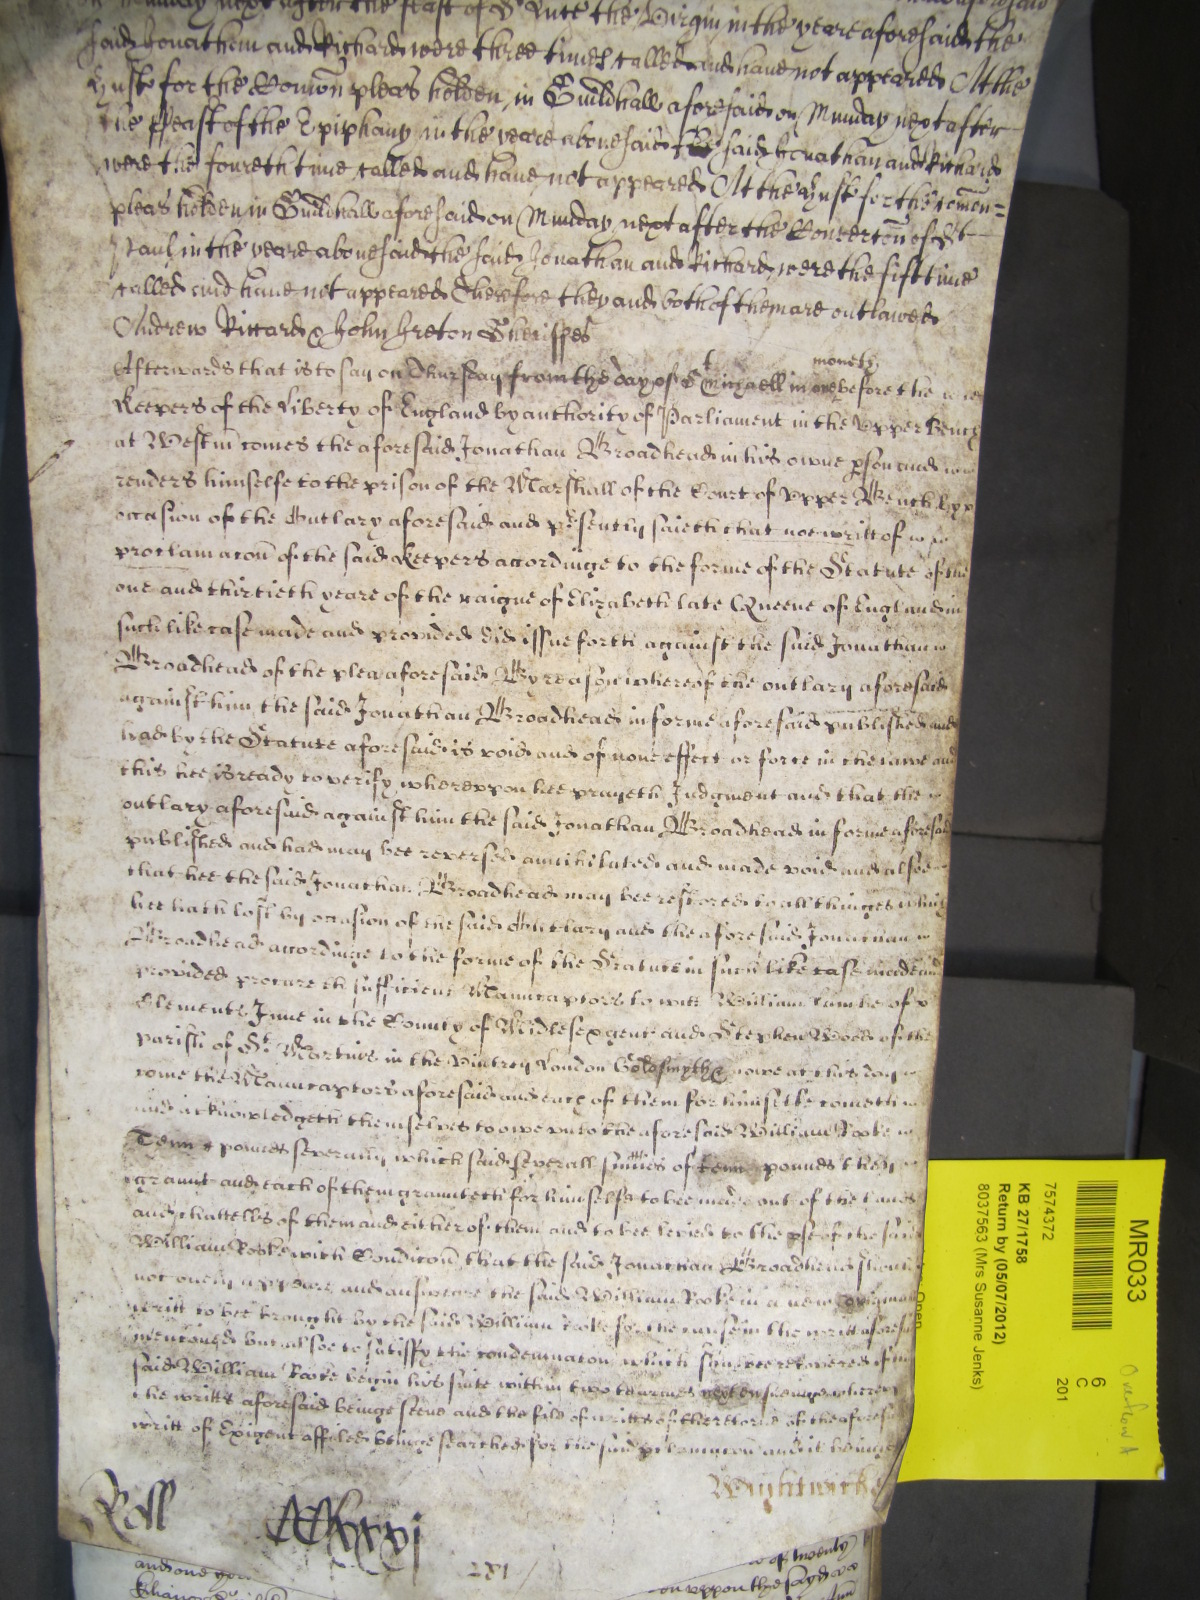 on Munday next after the feast of St Luce the Virgin in the yeare aforesaid the
said Jonathan and Richard were three times called and have not appeared At the
Hust for the Comon pleas holden in Guildhall aforesaid on Munday next after
the ffeast of the Epiphany in the yeare abovesaid the said Jonathan and Richard
were the foureth time called and have not appeared At the Hust for the comon
pleas holden in Guildhall aforesaid on Munday next after the Convercon of St
Paul in the yeare abovesaid the said Jonathan and Richard were the fift time
called and have not appeared Therefore they and both of them are outlawed
Andrew Riccard & John Ireton Sheriffes
moneth
Afterwards that is to say on Thursday from the day of St Michaell in one before the
Keepers of the Liberty of England by authority of Parliament in the Upper Bench
at Westm comes the aforesaid Jonathan Broadhead in his owne pson and
renders himselfe to the prison of the Marshall of the Court of Upper Bench
occasion of the Outlary aforesaid and psently saieth that noe writt of
proclamacon of the said Keepers accordinge to the forme of the Statute of the
one and thirtieth yeare of the raigne of Elizabeth late Queene of England in
such like case made and provided did issue forth against the said Jonathan
Broadhead of the plea aforesaid By reason whereof the outlary aforesaid
against him the said Jonathan Broadhead in forme aforesaid published and
had by the Statute aforesaid is void and of none effect or force in the lawe and
this hee is ready to verify whereupon hee prayeth Judgment and that the
outlary aforesaid against him the said Jonathan Broadhead in forme aforesaid
published and had may bee reversed annihilated and made void and alsoe
that hee the said Jonathan Broadhead may bee restored to all thinges which
hee hath lost by occasion of the said Outlary and the aforesaid Jonathan
Broadhead accordinge to the forme of the Statute in such like case made and
provided procureth sufficient Manucaptors to witt William of
Clements Inne in the County of Midlesex gent and Stephen Wood of the
parish of St Martins in the Vintrey London Goldsmyth nowe at this day
come the Manucaptors aforesaid and each of them for himselfe cometh
and acknowledgeth themselves to owe unto the aforesaid William Rooke
Tenn pounds severally which said severall sumes of tenn pounds they
graunt and each of them graunteth for himselfe to bee made out of the lands
and chattells of them and either of them and to bee levied to the use of the said
William Rooke with Condicon that the said Jonathan Broadhead should
not onely appeare and answeare the said William Rooke in a new originall
writt to bee brought by the said William Rooke for the cause in the writt aforesaid
mentioned but alsoe to satisfy the condemnacon which bee recovered if the
said William Rooke begin his suite within two tearmes next ensueinge whereupon
the writts aforesaid beinge seene and the file of writts of the retorne of the aforesaid
writt of Exigent affiled beinge searched for the said pclamacon and it beinge
Wightwick
Roll
231
and one
of twenty
on uppon the sayd
MR033
Overflow A
6
C
201
7574372
KB 27/1758
Return by (05/07/2012)
8037563 (Mrs Susanne Jenks)
Open